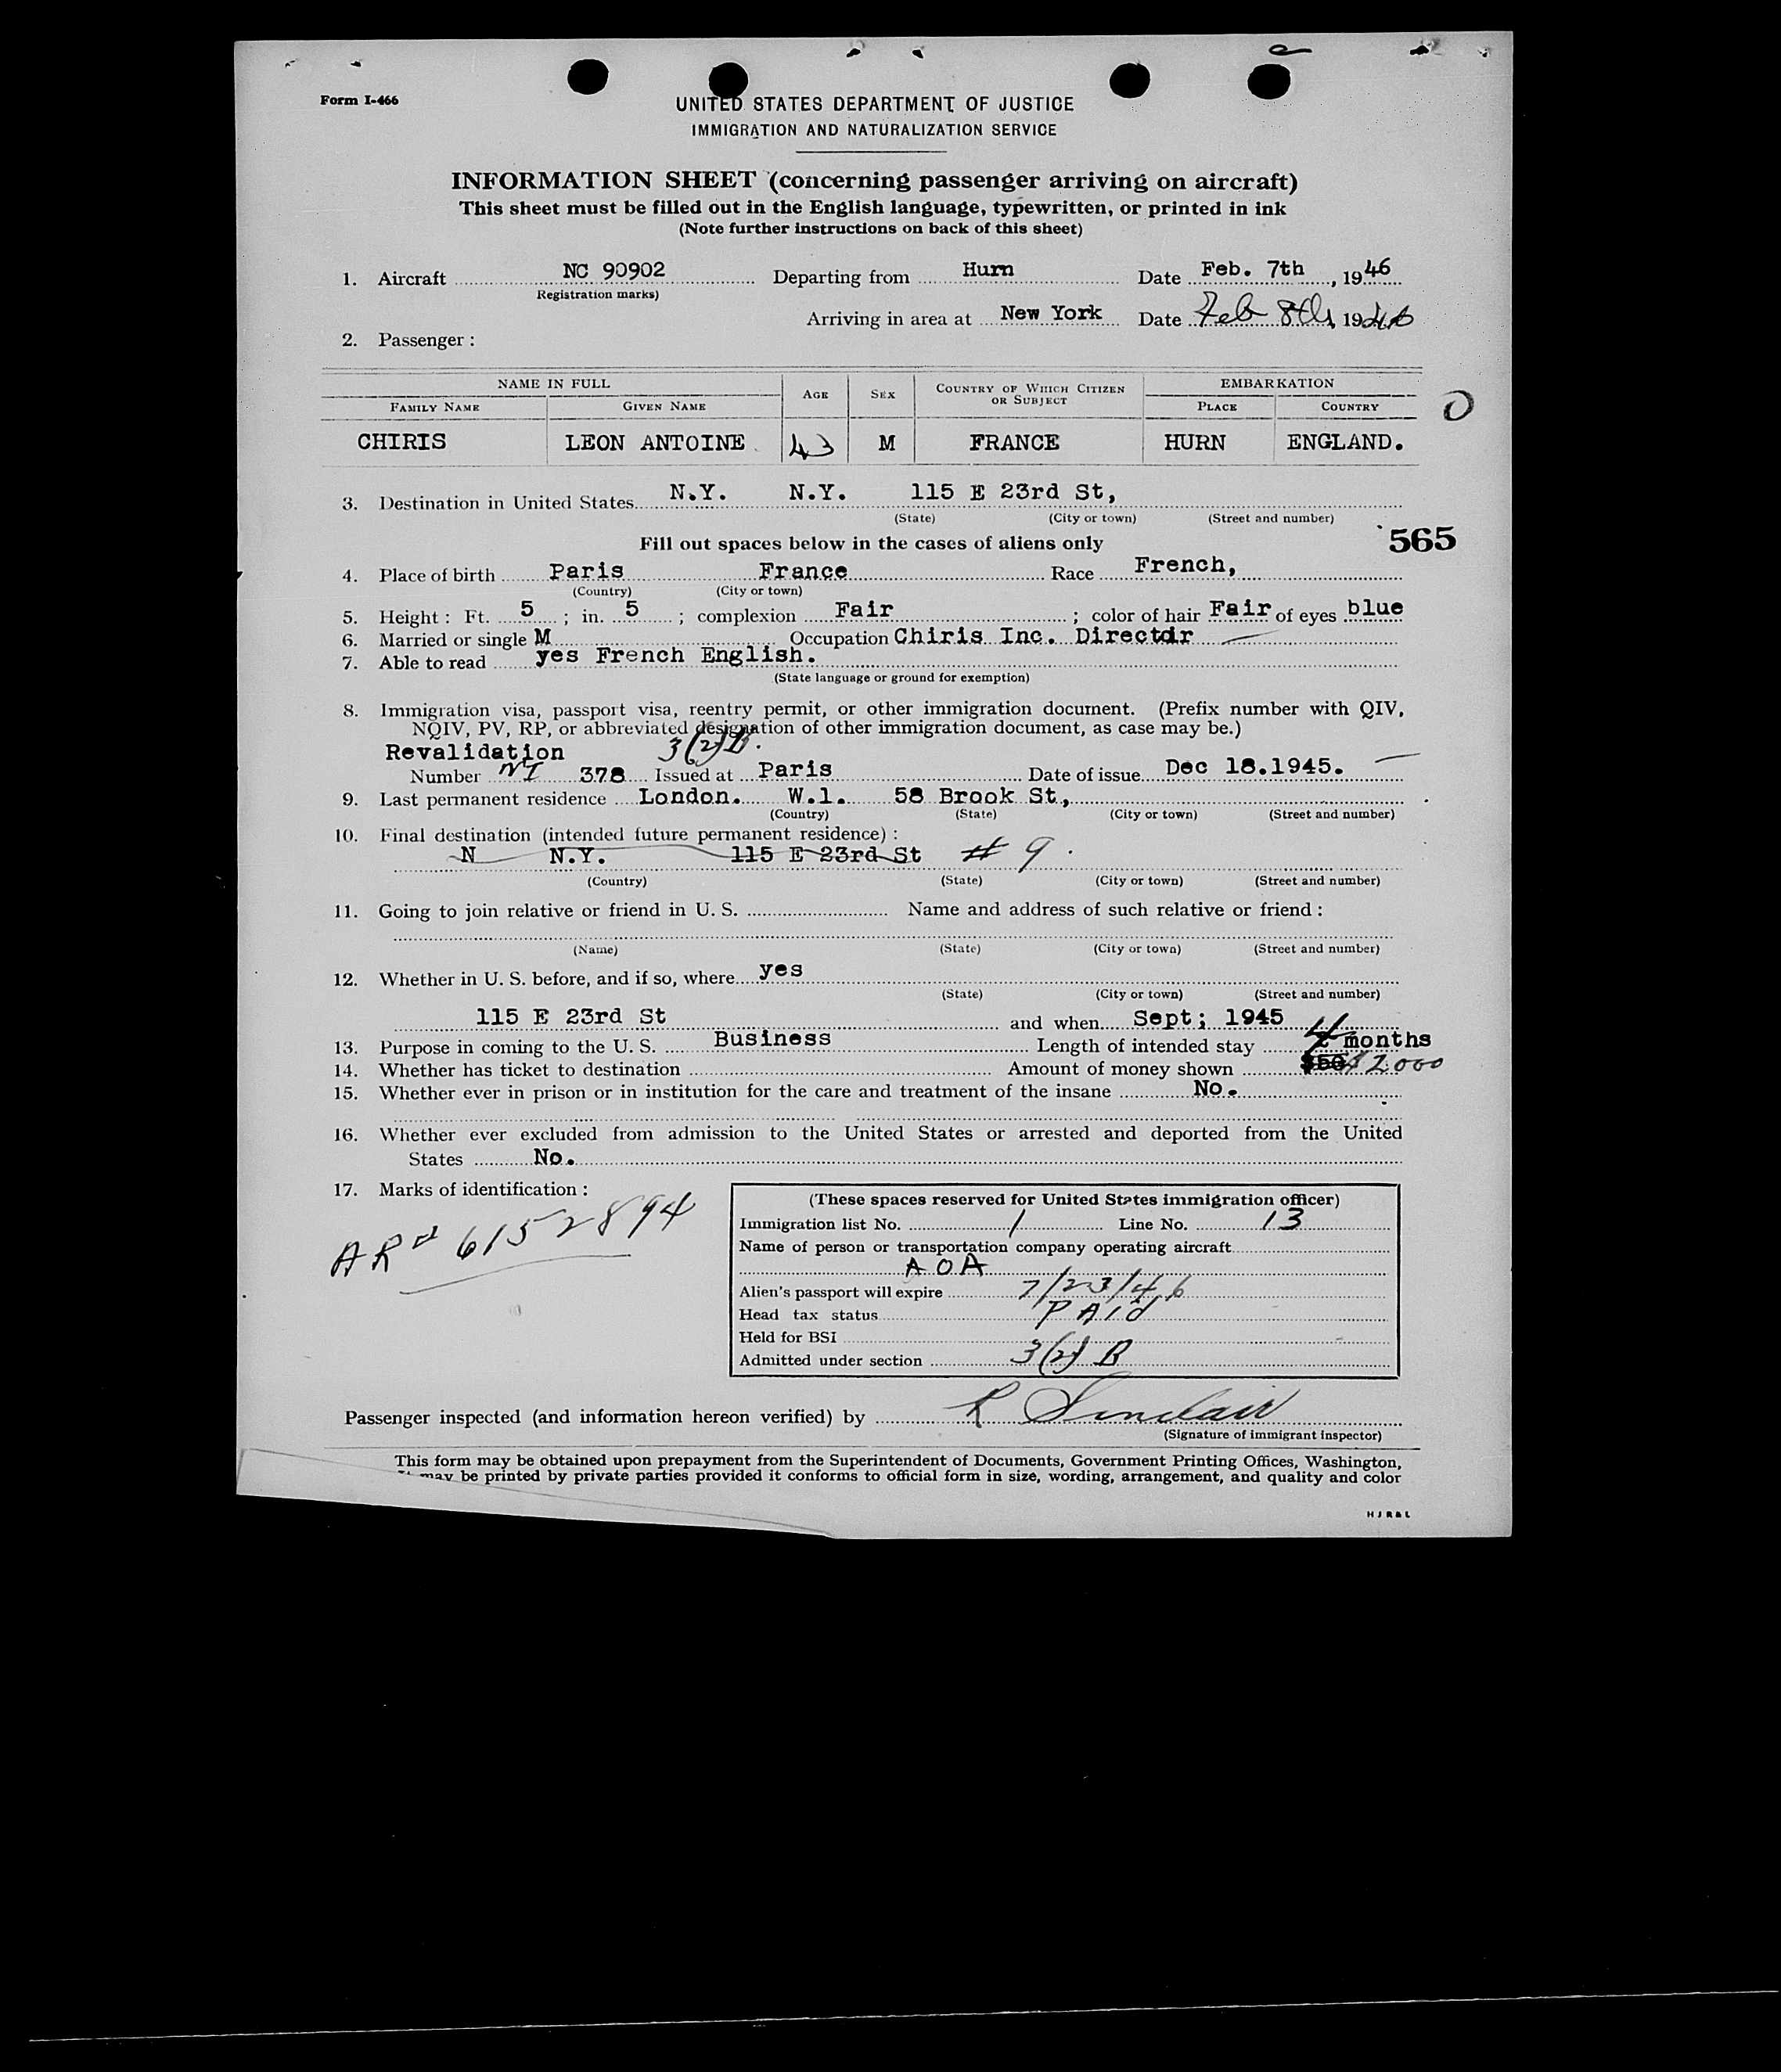 Form I-466
UNITED STATES DEPARTMENT OF JUSTICE
IMMIGRATION AND NATURALIZATION SERVICE
INFORMATION SHEET (concerning passenger arriving on aircraft)
This sheet must be filled out in the English language, typewritten, or printed in ink
(Note further instructions on back of this sheet)
1. Aircraft NC 90902 Departing from Hurn Date Feb. 7th, 1946
Registration marks)
Arriving in area at New York Date Feb 8th, 1946
2. Passenger:
NAME IN FULL AGE SEX COUNTRY OF WHICH CITIZEN OR SUBJECT EMBARKATION
FAMILY NAME GIVEN NAME PLACE COUNTRY
CHIRIS LEON ANTOINE 43 M FRANCE HURN ENGLAND.
3. Destination in United States N.Y. N.Y. 115 E 23rd St,
(State) (City or town) (Street and number)
565
Fill out spaces below in the cases of aliens only
4. Place of birth Paris France Race French,
(Country) (City or town)
5. Height: Ft. 5 ; in. 5 ; complexion Fair ; color of hair Fair of eyes blue
6. Married or single M Occupation Chiris Inc. Director
7. Able to read yes French English.
(State language or ground for exemption)
8. Immigration visa, passport visa, reentry permit, or other immigration document. (Prefix number with QIV,
NQIV, PV, RP, or abbreviated designation of other immigration document, as case may be.)
Revalidation 3(2)B.
Number NI 378 Issued at Paris Date of issue Dec 18.1945.
9. Last permanent residence London. W.1. 58 Brook St,
(Country) (State) (City or town) (Street and number)
10. Final destination (intended future permanent residence):
N N.Y. 115 E 23rd St # 9.
(Country) (State) (City or town) (Street and number)
11. Going to join relative or friend in U. S. Name and address of such relative or friend:
(Name) (State) (City or town) (Street and number)
12. Whether in U. S. before, and if so, where yes
(State) (City or town) (Street and number)
115 E 23rd St and when Sept; 1945
13. Purpose in coming to the U. S. Business Length of intended stay 4 months
14. Whether has ticket to destination Amount of money shown $50 $2000
15. Whether ever in prison or in institution for the care and treatment of the insane No.
16. Whether ever excluded from admission to the United States or arrested and deported from the United
States No.
17. Marks of identification:
AR# 6152894
(These spaces reserved for United States immigration officer)
Immigration list No. 1 Line No. 13
Name of person or transportation company operating aircraft
AOA
Alien's passport will expire 7/23/46
Head tax status PAid
Held for BSI
Admitted under section 3(2) B
Passenger inspected (and information hereon verified) by R Sinclair
(Signature of immigrant inspector)
This form may be obtained upon prepayment from the Superintendent of Documents, Government Printing Offices, Washington,
may be printed by private parties provided it conforms to official form in size, wording, arrangement, and quality and color
H J R & L